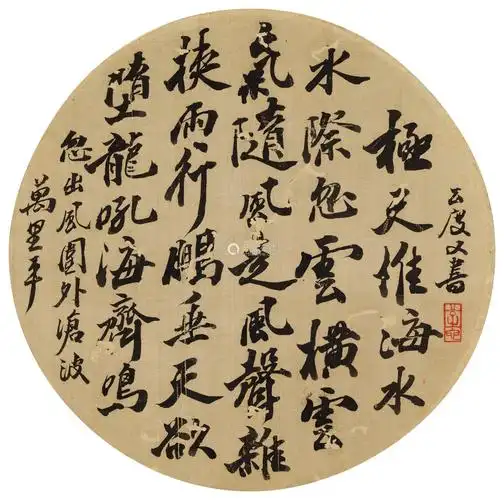 極天維海水
水際忽雲橫雲
氣隨風走風聲雜
挾雨行鵬垂天欲
墮龍吼海齊鳴
忽出風圍外滄波
萬里平
公度又書